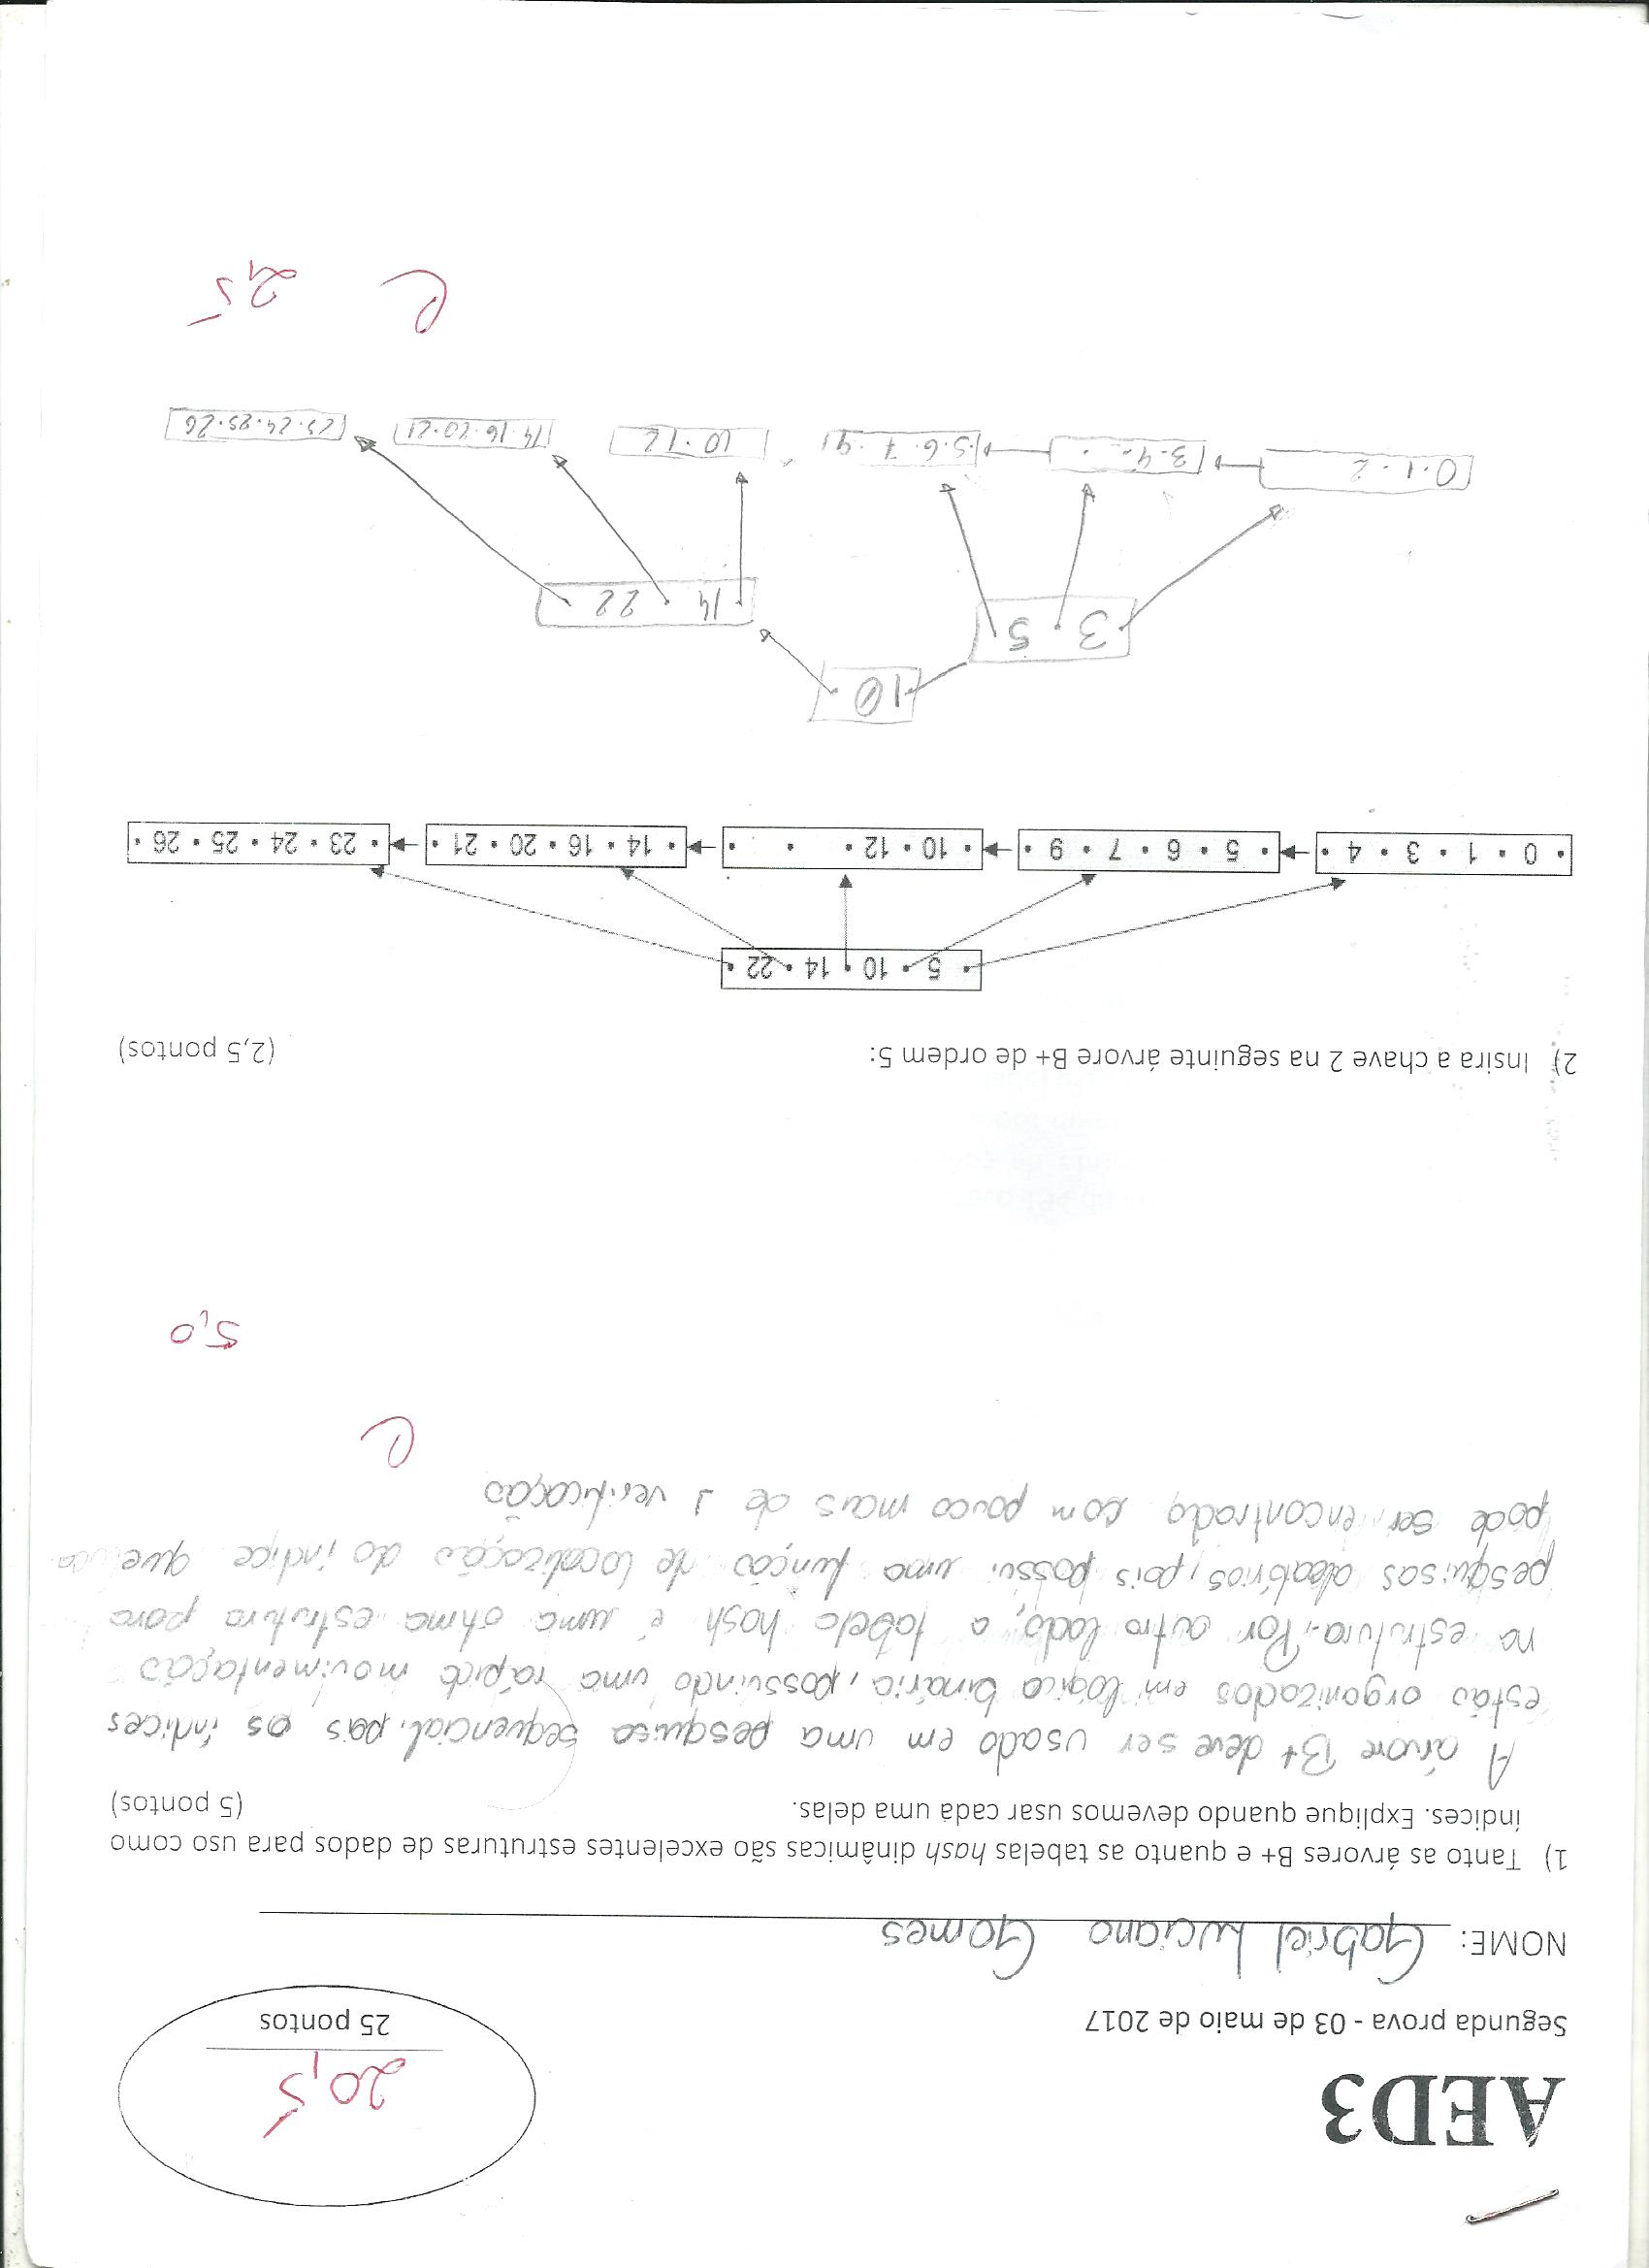 AED3
20,5
25 pontos
Segunda prova - 03 de maio de 2017
NOME: Gabriel Luciano Gomes
1) Tanto as árvores B+ e quanto as tabelas hash dinâmicas são excelentes estruturas de dados para uso como
índices. Explique quando devemos usar cada uma delas. (5 pontos)
A árvore B+ deve ser usado em uma pesquisa sequencial, pois os índices
estão organizados em lógica binária, possuindo uma rápida movimentação
na estrutura. Por outro lado, a tabela hash é uma ótima estrutura para
pesquisas aleatórios, pois possui uma função de localização do índice que
pode ser encontrado com pouco mais de 1 verificação
C
5,0
2) Insira a chave 2 na seguinte árvore B+ de ordem 5: (2,5 pontos)
• 5 • 10 • 14 • 22 •
• 0 • 1 • 3 • 4 • • 5 • 6 • 7 • 9 • • 10 • 12 • • • • 14 • 16 • 20 • 21 • • 23 • 24 • 25 • 26 •
10
3 . 5
14 . 22
0 . 1 . 2 3 . 4 . . .5.6.7.9 10 . 12 14.16.20.21 23.24.25.26
C 2,5